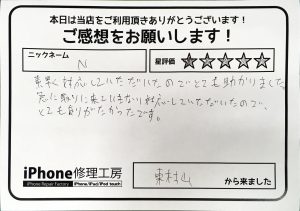 本日は当店をご利用頂きありがとうございます!
ご感想をお願いします!
ニックネーム
N
星評価
★★★★★
素早く対応していただいたのでとても助かりました。
対応していただいたので、
とてもありがたかったです。
iPhone修理工房
iPhone Repair Factory
iPhone/iPad/iPod touch
東村山
から来ました